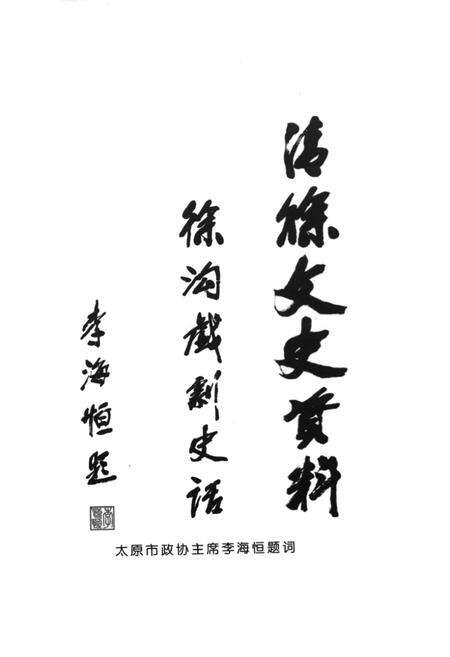 清徐文史资料
徐沟戏剧史话
李海恒题
太原市政协主席李海恒题词